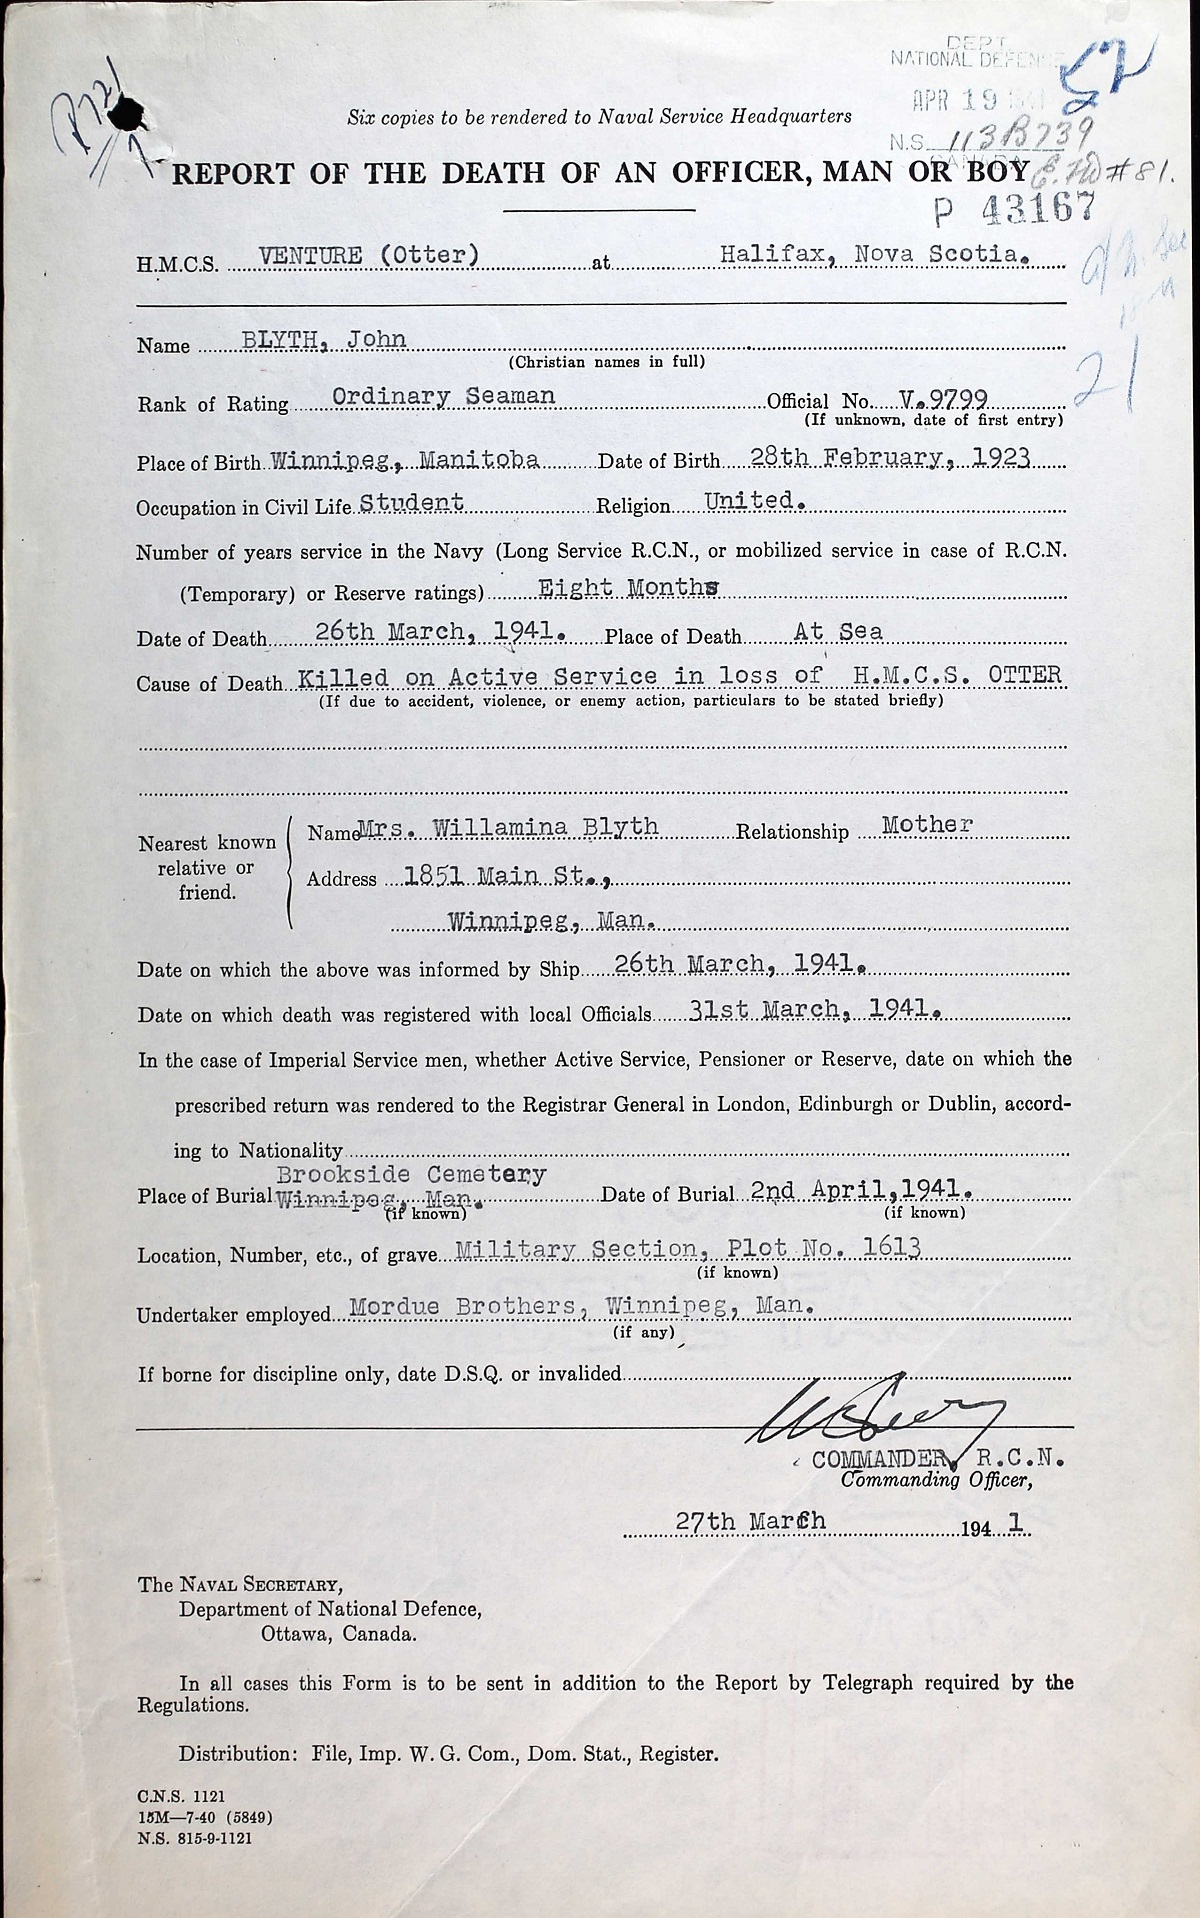 DEPT.
NATIONAL DEFENSE
52
APR 19
Six copies to be rendered to Naval Service Headquarters
N.S. 113B739
CANADA
REPORT OF THE DEATH OF AN OFFICER, MAN OR BOY
#81.
P 43167
H.M.C.S. VENTURE (Otter) at Halifax, Nova Scotia.
Name BLYTH, John
(Christian names in full)
21
Rank of Rating Ordinary Seaman Official No. V.9799
(If unknown, date of first entry)
Place of Birth Winnipeg, Manitoba Date of Birth 28th February, 1923
Occupation in Civil Life Student Religion United.
Number of years service in the Navy (Long Service R.C.N., or mobilized service in case of R.C.N.
(Temporary) or Reserve ratings) Eight Months
Date of Death 26th March, 1941. Place of Death At Sea
Cause of Death Killed on Active Service in loss of H.M.C.S. OTTER
(If due to accident, violence, or enemy action, particulars to be stated briefly)
Nearest known relative or friend.
Name Mrs. Willamina Blyth Relationship Mother
Address 1851 Main St.,
Winnipeg, Man.
Date on which the above was informed by Ship 26th March, 1941.
Date on which death was registered with local Officials 31st March, 1941.
In the case of Imperial Service men, whether Active Service, Pensioner or Reserve, date on which the
prescribed return was rendered to the Registrar General in London, Edinburgh or Dublin, accord-
ing to Nationality
Brookside Cemetery
Place of Burial Winnipeg, Man. Date of Burial 2nd April, 1941.
(if known) (if known)
Location, Number, etc., of grave Military Section, Plot No. 1613
(if known)
Undertaker employed Mordue Brothers, Winnipeg, Man.
(if any)
If borne for discipline only, date D.S.Q. or invalided
COMMANDER, R.C.N.
Commanding Officer,
27th March 1941
The NAVAL SECRETARY,
Department of National Defence,
Ottawa, Canada.
In all cases this Form is to be sent in addition to the Report by Telegraph required by the
Regulations.
Distribution: File, Imp. W. G. Com., Dom. Stat., Register.
C.N.S. 1121
15M—7-40 (5849)
N.S. 815-9-1121